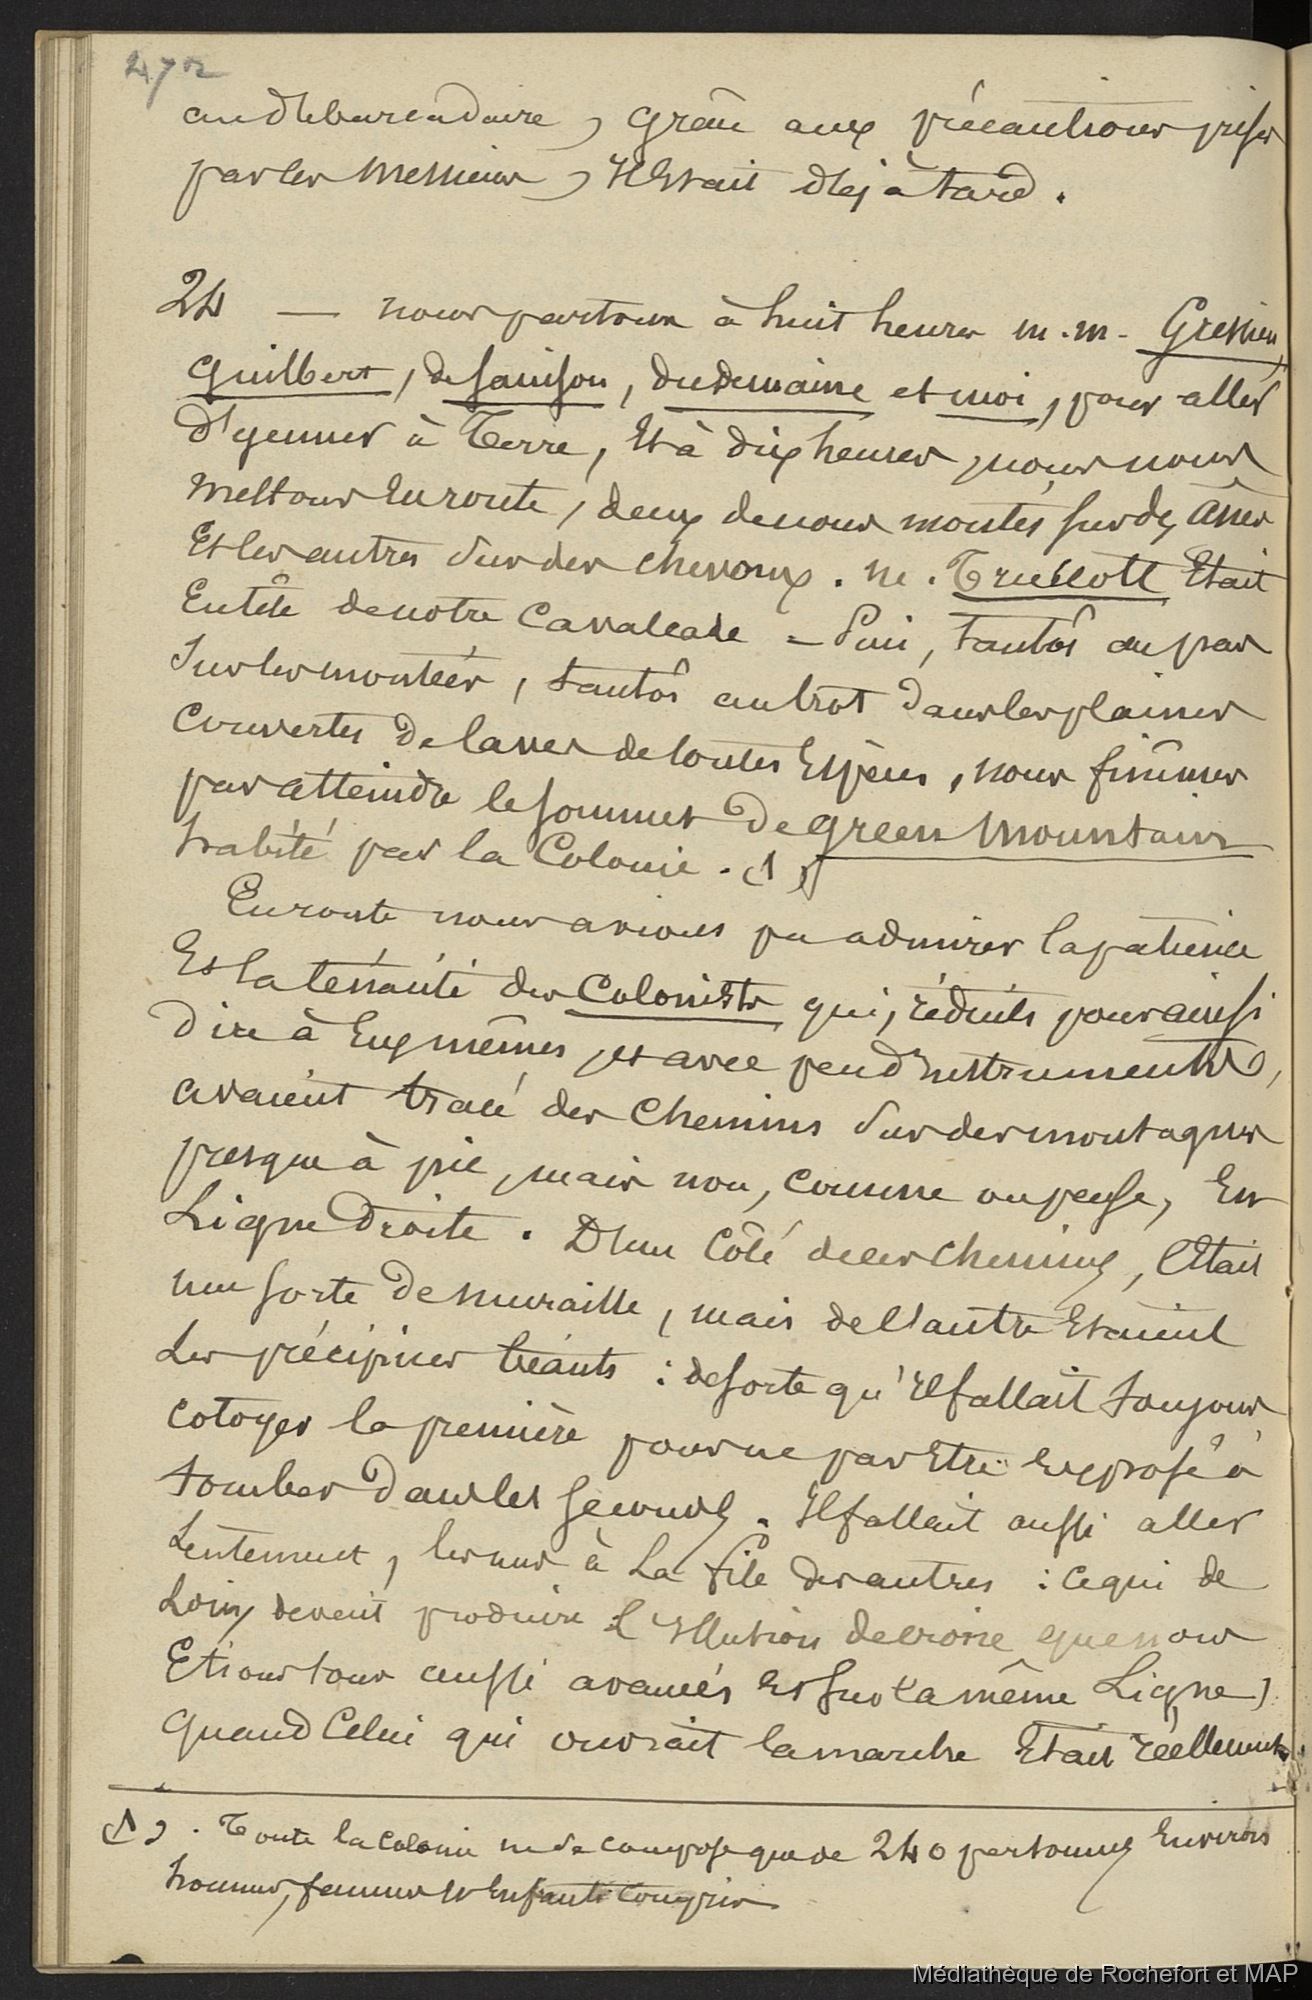 472
au débarcadaire, grâce aux précautions prises
par les messieurs, il était déjà tard.
24 — nous partons à huit heures m.m. Gressien,
Guilbert, de Sainson, Dudemaine et moi, pour aller
déjeuner à Terre, et à dix heures, nous nous
mettons en route, deux de nous montés sur des ânes
et les autres sur des chevaux. M. Truscott était
en tête de notre cavalcade = Puis, tantôt au pas
sur les montées, tantôt au trot dans les plaines
couvertes de laves de toutes espèces, nous finîmes
par atteindre le sommet de green mountain
habité par la Colonie. (1)
En route nous avions pu admirer la patience
et la ténacité des Colonists qui, réduits pour ainsi
dire à eux mêmes, et avec peu d'instruments,
avaient tracé des chemins sur des montagnes
presque à pic, mais non, comme on pense, en
Ligne droite. D'un côté de ces chemins, c'était
une sorte de muraille, mais de l'autre étaient
des précipices béants : de sorte qu'il fallait toujours
cotoyer la première pour ne pas être exposé à
tomber dans les seconds. Il fallait aussi aller
Lentement, les uns à La file des autres : ce qui de
Loin devait produire l'illusion de croire que nous
étions tous aussi avancés et sur la même Ligne,
quand Celui qui ouvrait la marche était réellement
(1). Toute la colonie ne se compose que de 240 personnes environ
hommes, femmes et enfants compris
Médiathèque de Rochefort et MAP